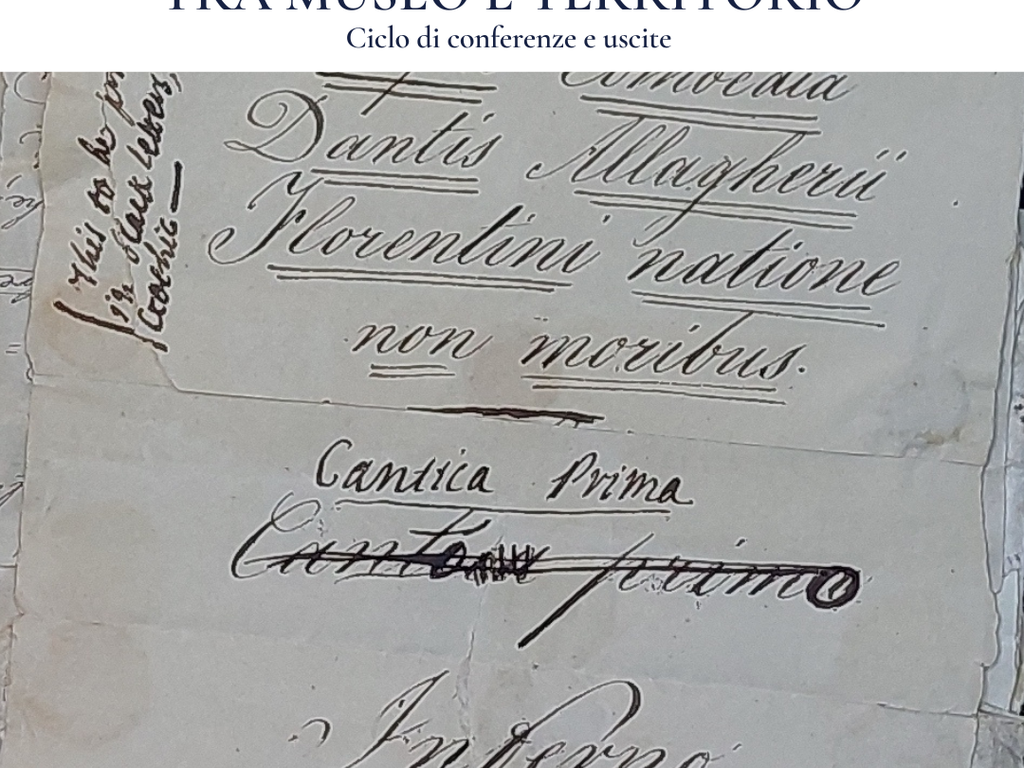 TRA MUSEO E TERRITORIO
Ciclo di conferenze e uscite
Comoedia
Dantis Allagherii
Florentini natione
non moribus.
Cantica Prima
Canto primo
Inferno
This to be
in black letters